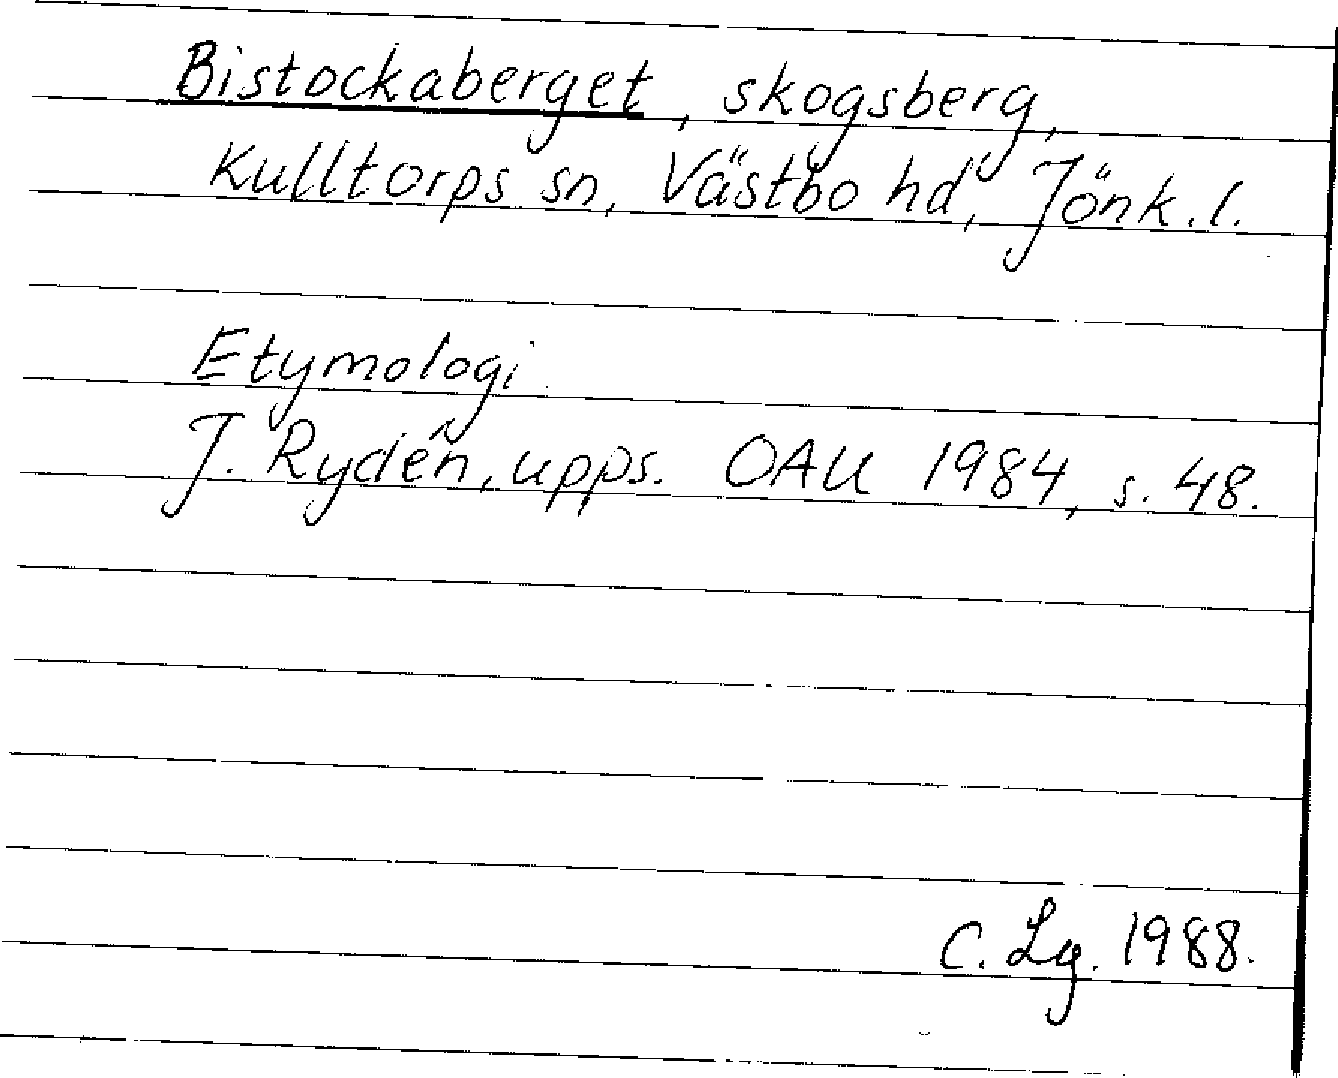 Bistockaberget, skogsberg,
Kulltorps sn, Västbo hd, Jönk. l.
Etymologi.
J. Rydén, upps. OAU 1984, s. 48.
C. Lg. 1988.